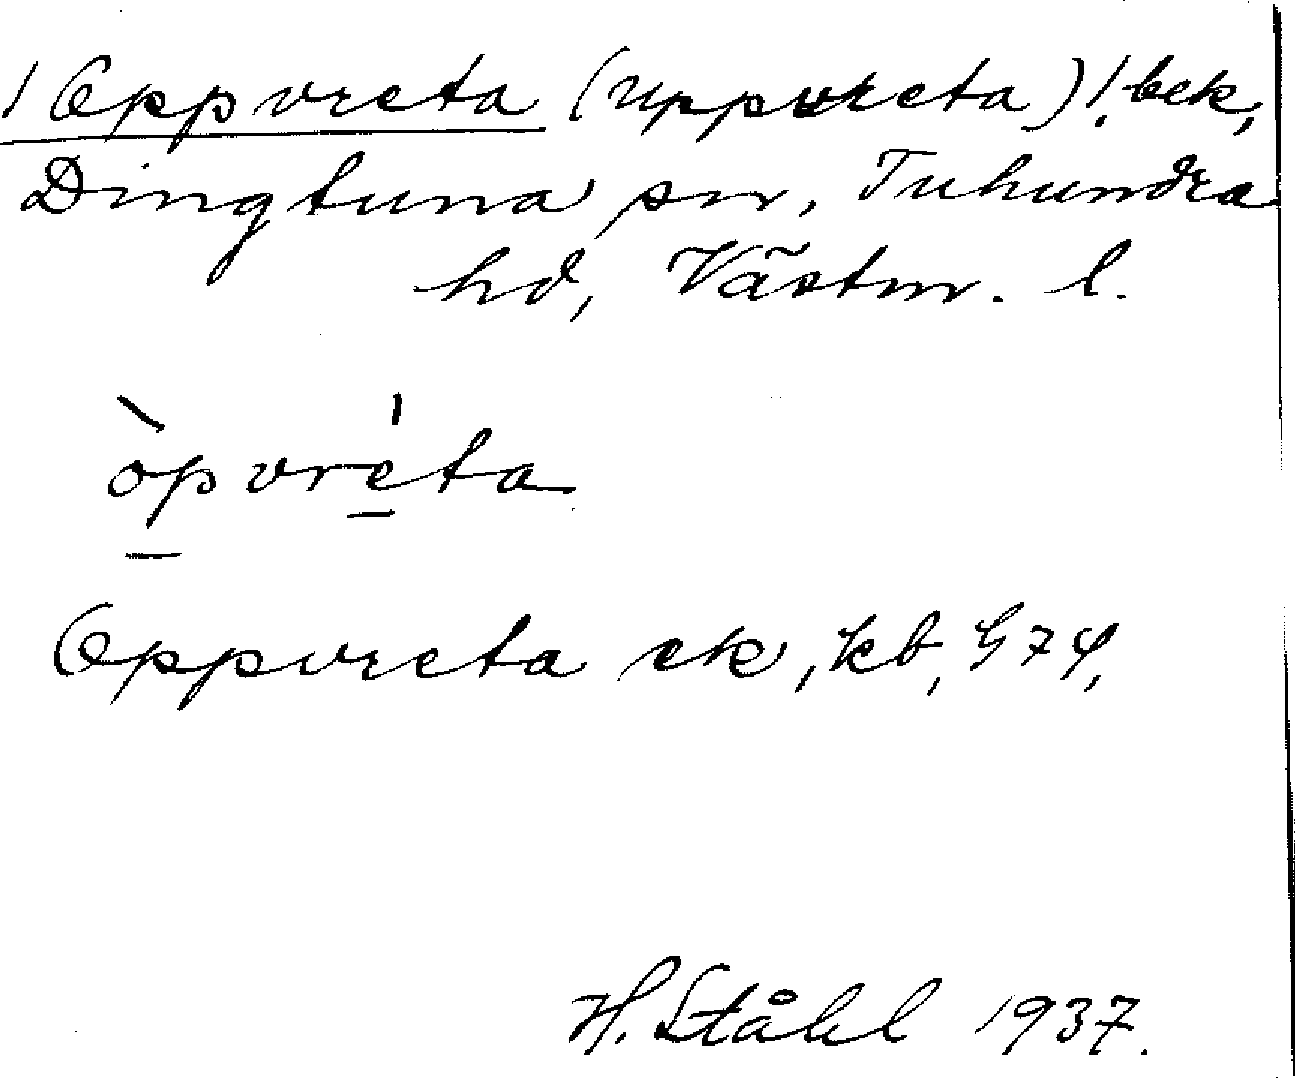 ! Oppvreta (Uppvreta)! bek,
Dingtuna sn, Tuhundra
hd, Västm. l.
òpvréta
Oppvreta ek, kb, G74,
H. Ståhl 1937.